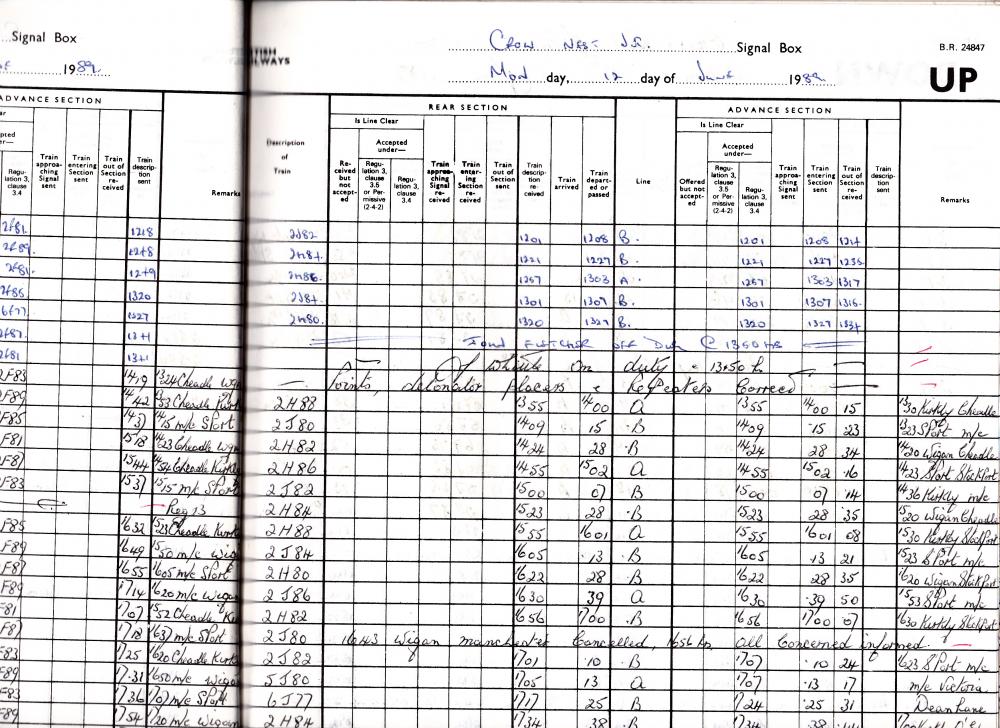 Signal Box
Crow Nest Jn. Signal Box
B.R. 24847
1989
Mon day, 12 day of June 1989
UP
ADVANCE SECTION
REAR SECTION
ADVANCE SECTION
Is Line Clear
Is Line Clear
Accepted under—
Accepted under—
Regulation 3, clause 3.4
Train approaching Signal sent
Train entering Section sent
Train out of Section received
Train description sent
Remarks
Description of Train
Received but not accepted
Regulation 3, clause 3.5 or Permissive (2-4-2)
Regulation 3, clause 3.4
Train approaching Signal received
Train entering Section received
Train out of Section sent
Train description received
Train arrived
Train departed or passed
Line
Offered but not accepted
Regulation 3, clause 3.5 or Permissive (2-4-2)
Regulation 3, clause 3.4
Train approaching Signal sent
Train entering Section sent
Train out of Section received
Train description sent
Remarks
2F81 1218 2J82 1201 1208 B. 1201 1208 1214
1248 1221 1227 B. 1221 1227 1235
2F81 1249 2H86 1257 1303 A. 1257 1303 1317
2F85 1320 2J84 1301 1307 B. 1301 1307 1315
6F77 1327 2H80 1320 1327 B. 1320 1327 1334
2F87 1341
2F81 1341 OFF DUTY @ 1350 HS
White on duty 1350 h
2F83 1419 1324 Cheadle Wgn Points, detonator placers & Repeaters Correct
2F89 1442 Cheadle Kirk 2H88 1355 1400 A 1355 1400 15 1330 Kirkby Cheadle
2F85 1437 1415 m/c Sport 2J80 1409 15 B 1409 15 23 1323 Sport m/c
2F81 1518 1423 Cheadle Wgn 2H82 1424 28 B 1424 28 34 1420 Wigan Cheadle
2F87 1544 1454 Cheadle Kirkby 2H86 1455 1502 A 1455 1502 16 1423 Sport Stockport
2F83 1537 1515 m/c Sport 2J82 1500 07 B 1500 07 14 1436 Kirkby m/c
Reg 13 2H84 1523 28 B 1523 28 35 1520 Wigan Cheadle
2F85 1632 1523 Cheadle Kirk 2H88 1555 1601 A 1555 1601 08 1530 Kirkby Stockport
2F89 1649 1550 m/c Wiga 2J84 1605 13 B 1605 13 21 1523 Sport m/c
2F87 1655 1605 m/c Sport 2H80 1622 28 B 1622 28 35 1620 Wigan Stkport
2F89 1714 1620 m/c Wigan 2J86 1630 39 A 1630 39 50 1553 Sport m/c
2F81 1707 1552 Cheadle Ki 2H82 1656 1700 B 1656 1700 07 1630 Kirkby Stkport
2F87 1718 1637 m/c Sport 2J80 1643 Wigan Manchester Cancelled, 1656 hrs all Concerned informed.
2F83 1725 1620 Cheadle Kirk 2J82 1701 10 B 1707 10 24 1623 Sport m/c
2F89 1731 1650 m/c Wigan 5J80 1705 13 A 1707 13 17 m/c Victoria
2F83 1736 1707 m/c Sport 6J77 1717 25 B 1724 25 31 Dean Lane
2F89 1754 1720 m/c Wigan 2H84 1734 38 B 1734 38